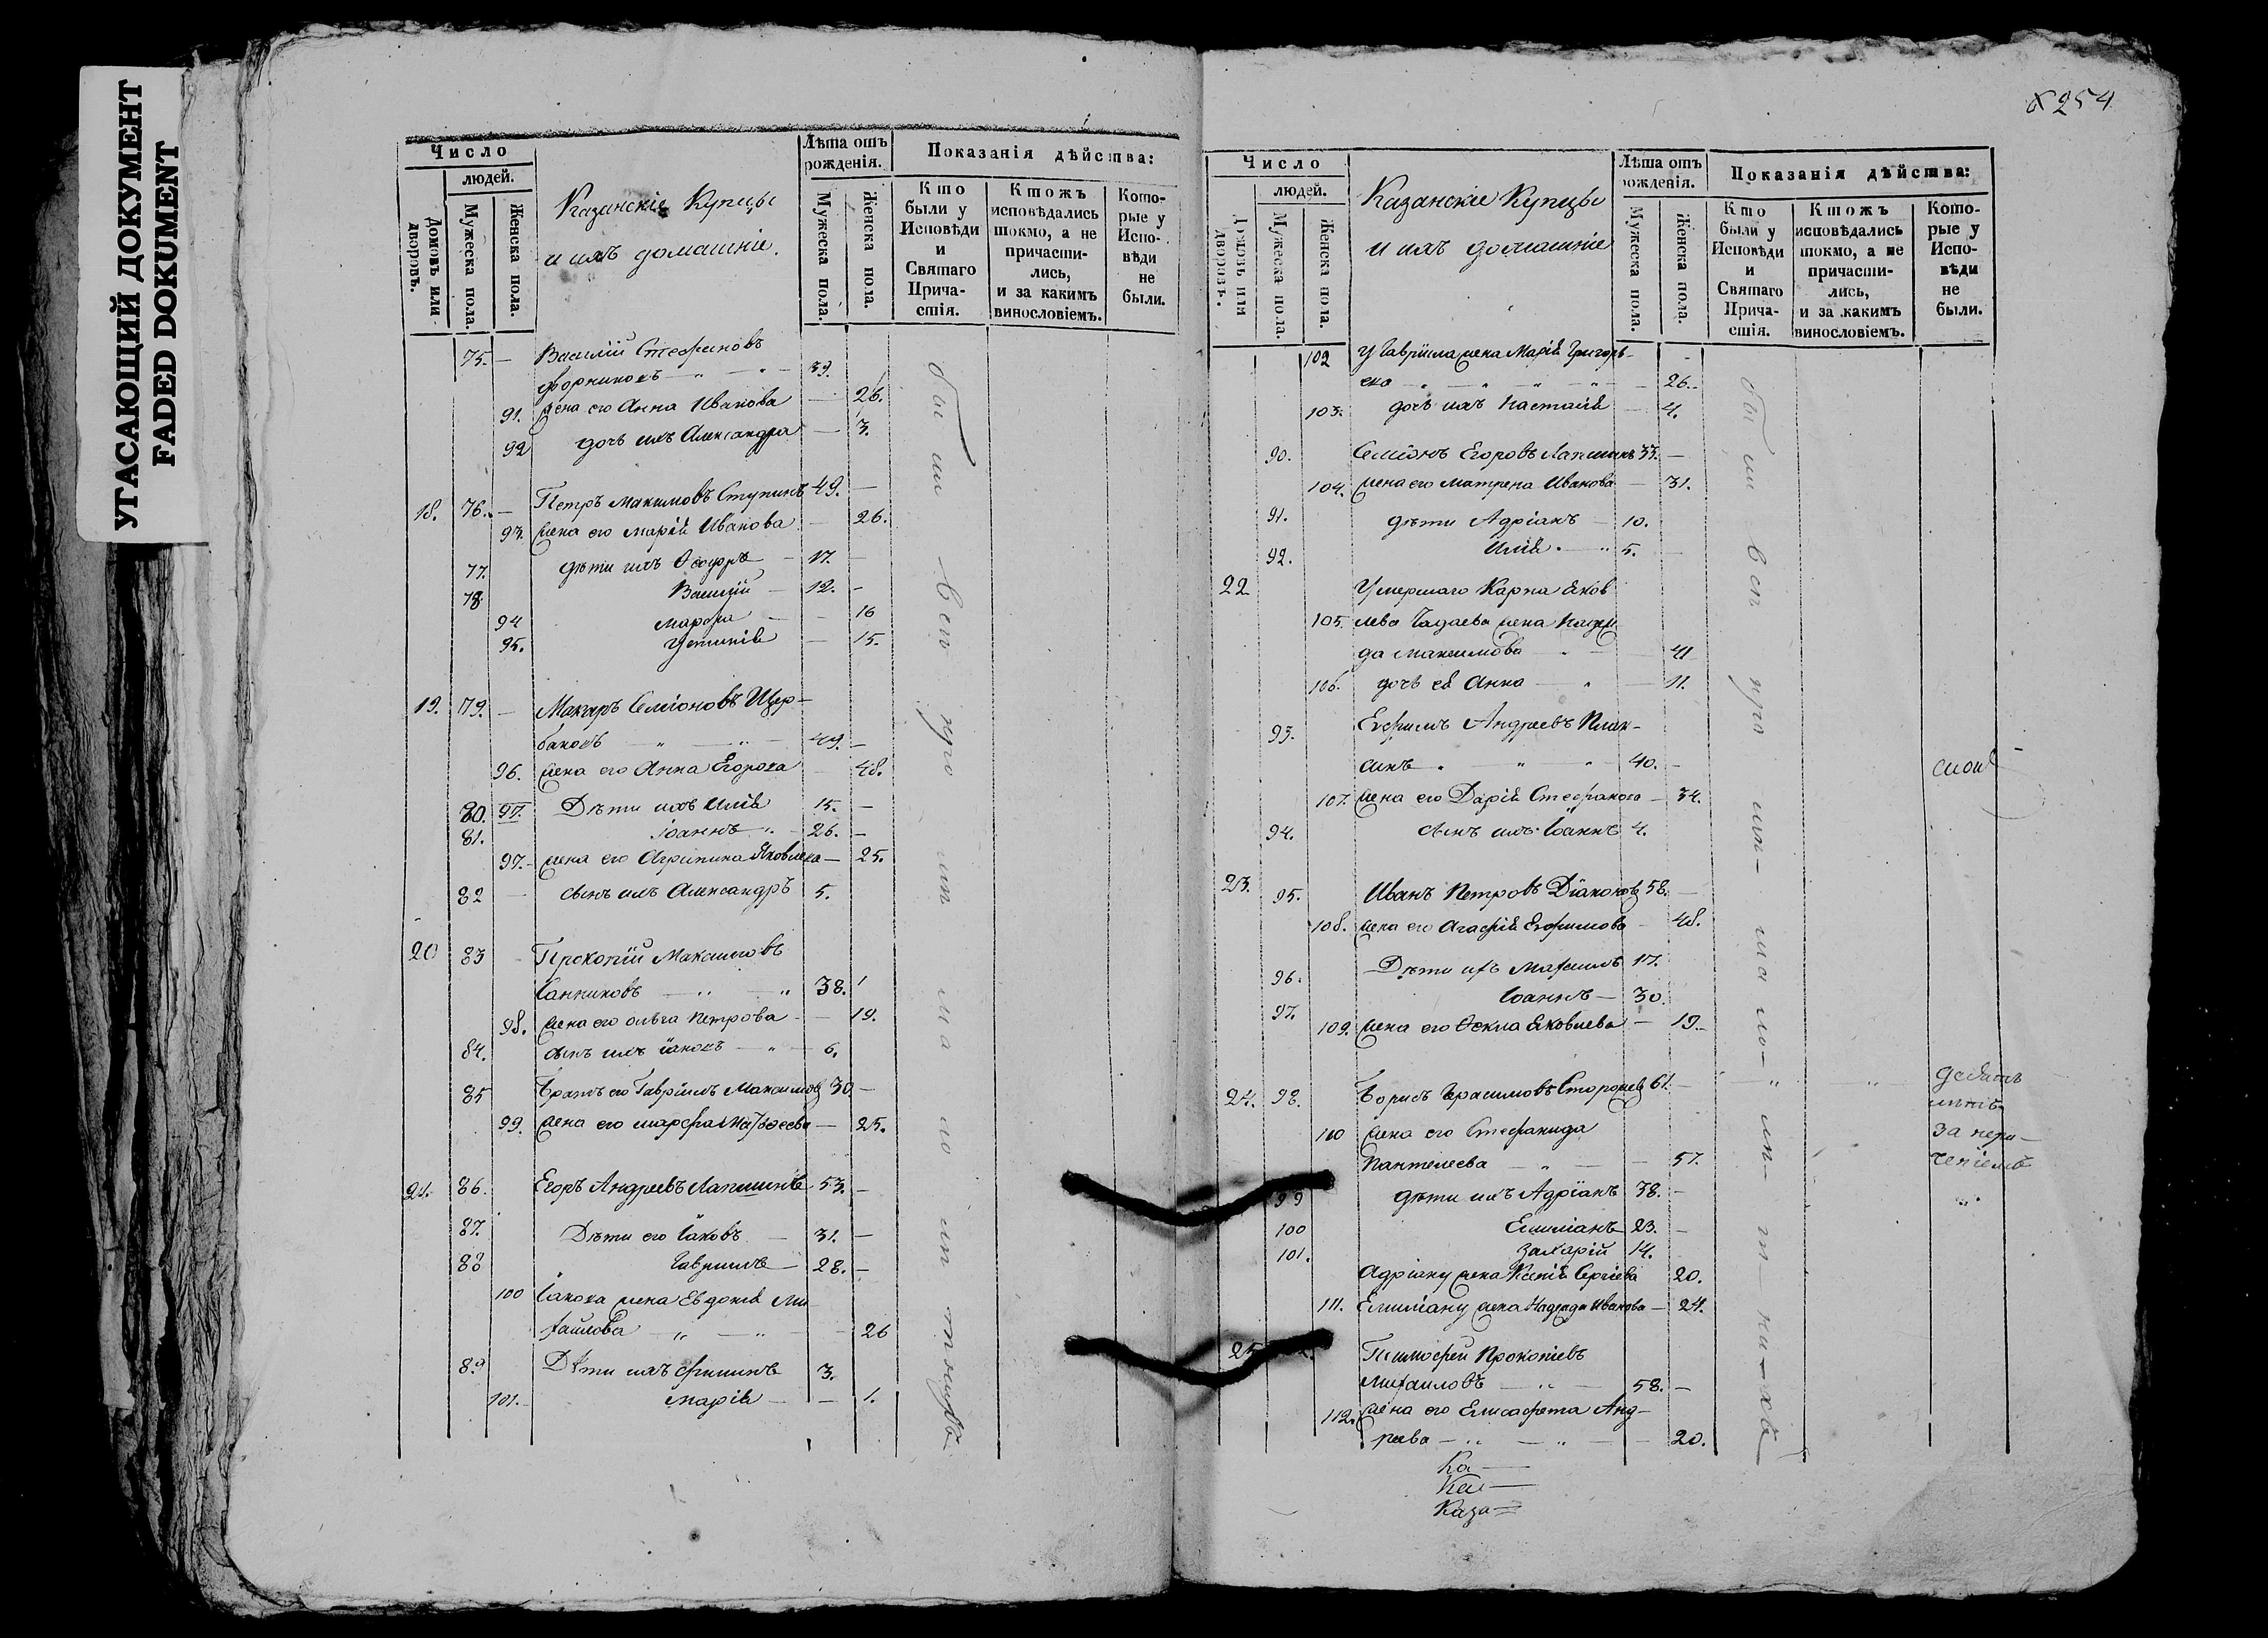 УГАСАЮЩИЙ ДОКУМЕНТ
FADED DOKUMENT
Число
людей.
Домовъ или дворовъ.
Мужеска пола.
Женска пола.
Казанскіе Купцы
и ихъ домашніе.
Лѣта отъ рожденія.
Мужеска пола.
Женска пола.
Показанія дѣйства:
Кто были у Исповѣди и Святаго Прича-стія.
Ктожъ исповѣдались токмо, а не причасти-лись, и за какимъ винословіемъ.
Кото-рые у Испо-вѣди не были.
75. — Василій Стефановъ
Дворниковъ — " — " — 39.
91. жена его Анна Иванова — 26.
92 дочь ихъ Александра — 3.
18. 76. — Петръ Максимовъ Ступинъ 49. —
93. жена его Марія Иванова — 26.
77. дѣти ихъ Ѳеодоръ — 17. —
78. Василій — 12. —
94 Марфа — — 16
95. Устинія — 15.
19. 79. — Макаръ Семіоновъ Щер-
баковъ — " — " — 49. —
96. жена его Анна Егорова — 48.
80. 97. Дѣти ихъ Илія 15. —
81. Іоаннъ " — 26. —
97. — жена его Агрипина Яковлева — 25.
82 — сынъ ихъ Александръ 5.
20 83 Прокопій Максимовъ
Санниковъ — " — " 38.
98. жена его Ольга Петрова — — 19.
84. сынъ ихъ Іаковъ — " — 6.
85 Братъ его Гавріилъ Максимовъ 30 —
99. жена его Марфа Матвѣева — 25.
21. 86. Егоръ Андреевъ Лапшинъ 53. —
87. Дѣти его Іаковъ — 31. —
88 Гавріилъ — 28. —
100 Іакова жена Евдокія Ми
хайлова — " — " — 26
89 Дѣти ихъ Филипъ 3.
101. — Марія — — 1.
были вси про ... тыихъ
254
Число
людей.
Домовъ или дворовъ.
Мужеска пола.
Женска пола.
Казанскіе Купцы
и ихъ домашніе
Лѣта отъ рожденія.
Мужеска пола.
Женска пола.
Показанія дѣйства:
Кто были у Исповѣди и Святаго Прича-стія.
Ктожъ исповѣдались токмо, а не причасти-лись, и за какимъ винословіемъ.
Кото-рые у Испо-вѣди не были.
102 У Гавріила жена Марія Григорь-
ева — " — " — " — 26.
103. дочь ихъ Настасія — 4.
90. Семіонъ Егоровъ Лапшинъ 33. —
104. жена его Матрена Иванова — 31.
91. дѣти Адріанъ — 10.
92. Илія — " 5. —
22 Умершаго Карпа Яков
105. лева Чадаева жена Надеж
да Максимова — " — 41
106. дочь ея Анна — " — 11.
93. Ефимъ Андреевъ
" " " 40. —
107. жена его Дарія Стефанова — 34.
94. сынъ ихъ Іоаннъ 4.
23. 95. Иванъ Петровъ Діаконовъ 58. —
108. жена его Агафія Ефимова — 48.
96. Дѣти ихъ Максимъ 17.
97. Іоаннъ — 30.
109. жена его Ѳекла Яковлева — 19.
24. 98. Борисъ Герасимовъ 61. —
110 жена его Стефанида
Пантелеева — " — — 57.
99 дѣти ихъ Адріанъ 38. —
100 Емиліанъ 23. —
101. Захарій 14.
Адріану жена Ксенія Сергіева 20.
111. Емиліану жена Надежда Иванова — 24.
25 Тимофей Прокопіевъ
Михаиловъ — " — 58. —
112. жена его Елисафета Анд-
реева — " — " — — 20.
были вси про
за нера-
ченіемъ
Ка —
Ка —
Каза =